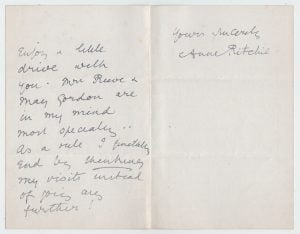 Enjoy a little
drive with
you. Mrs Reeve &
May Gordon are
in my mind
most specially..
As a rule I generally
end by
my visits instead
of going any
further!
Yours sincerely
Anne Ritchie